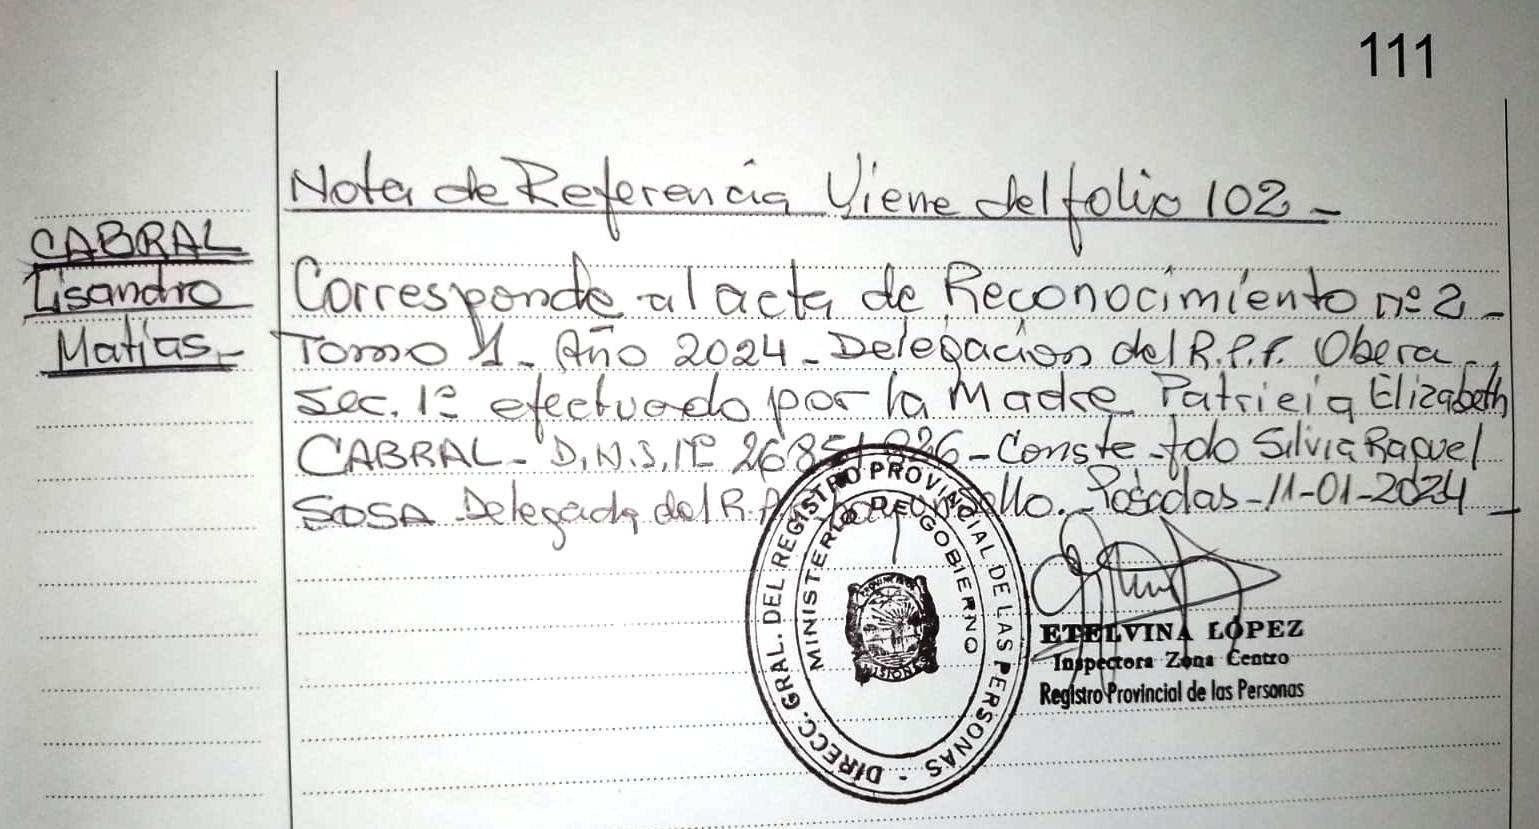 111
Nota de Referencia Viene del folio 102 -
CABRAL
Lisandro
Matías -
Corresponde al acta de Reconocimiento nº 2 -
Tomo 1 - Año 2024 - Delegación del R.P.P. Obera -
Sec. 1º efectuado por la Madre Patricia Elizabeth
CABRAL - D.N.I. Nº 26851826 - Conste - fdo Silvia Raquel
SOSA - Delegada del R.P. sello. Posadas - 11-01-2024 -
DIRECC. GRAL. DEL REGISTRO PROVINCIAL DE LAS PERSONAS -
MINISTERIO DE GOBIERNO
MISIONES
ETELVINA LOPEZ
Inspectora Zona Centro
Registro Provincial de las Personas